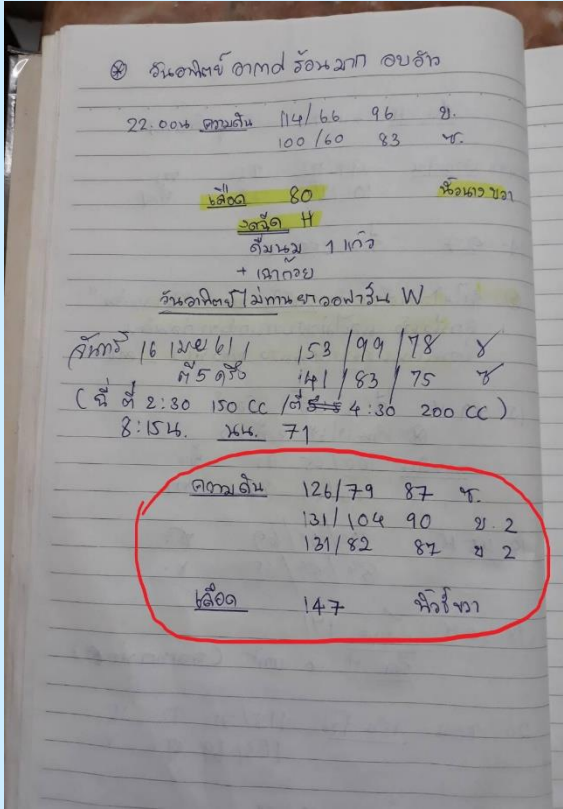 ⊛ วันอาทิตย์ อากาศ ร้อนมาก อบอ้าว
22.00น ความดัน 114/66 96 ข.
100/60 83 ซ.
เลือด 80 นิ้วนางขวา
งดฉีด H
ดื่มนม 1 แก้ว
+ เฉาก๊วย
วันอาทิตย์ไม่ทานยาวอฟาริน W
จันทร์ 16 เมย 61 153/99/78 ข
ตี5 ครึ่ง 141/83/75 ซ
(ฉี่ ตี 2:30 150 CC /ตี 4:30 200 CC)
8:15น. นน. 71
ความดัน 126/79 87 ซ.
131/104 90 ข. 2
131/82 87 ข 2
เลือด 147 นิ้วชี้ขวา